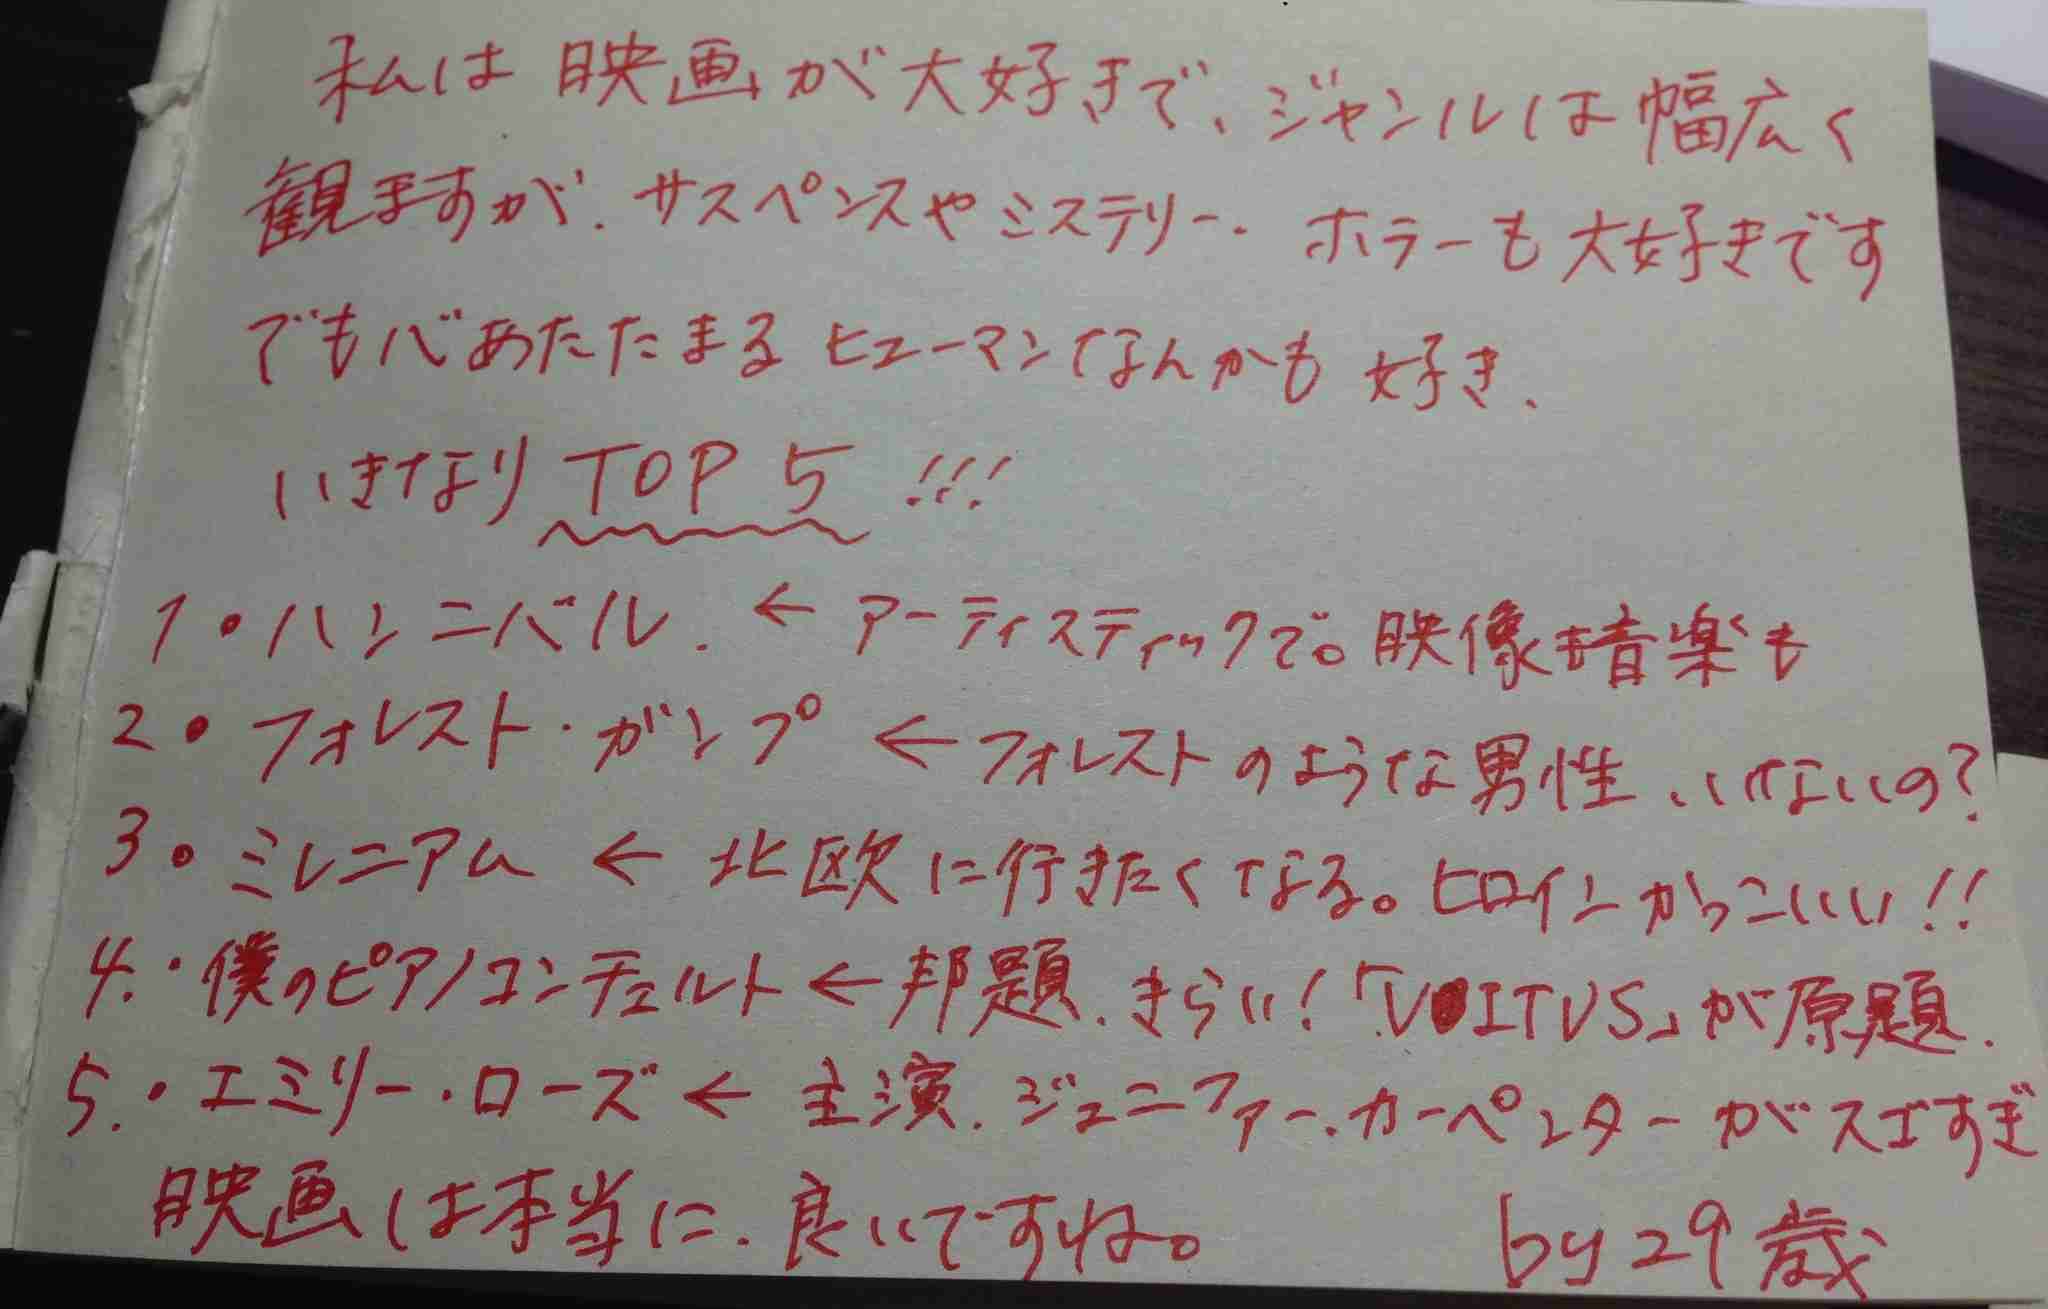 私は映画が大好きで、ジャンルは幅広く
観ますが、サスペンスやミステリー、ホラーも大好きです
でも心あたたまるヒューマンなんかも好き、
いきなりTOP 5!!!
1・ハンニバル. ← アーティスティックで。映像も音楽も
2・フォレスト・ガンプ ← フォレストのような男性、いないの?
3・ミレニアム ← 北欧に行きたくなる。ヒロインかっこいい!!
4.・僕のピアノコンチェルト ← 邦題、きらい!「VITUS」が原題.
5.・エミリー・ローズ ← 主演、ジェニファー・カーペンターがスゴすぎ
映画は本当に、良いですね。 by 29歳